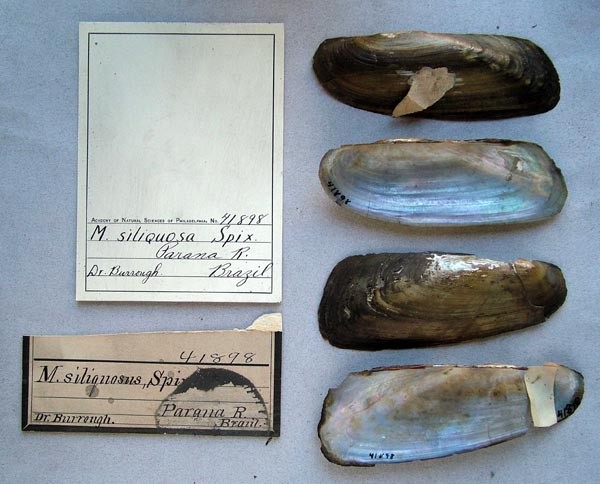 ACADEMY OF NATURAL SCIENCES OF PHILADELPHIA, NO. 41898
M. siliquosa Spix.
Parana R.
Dr. Burrough. Brazil
41898
M. siliquosus, Spix
Parana R.
Dr. Burrough. Brazil.
41898